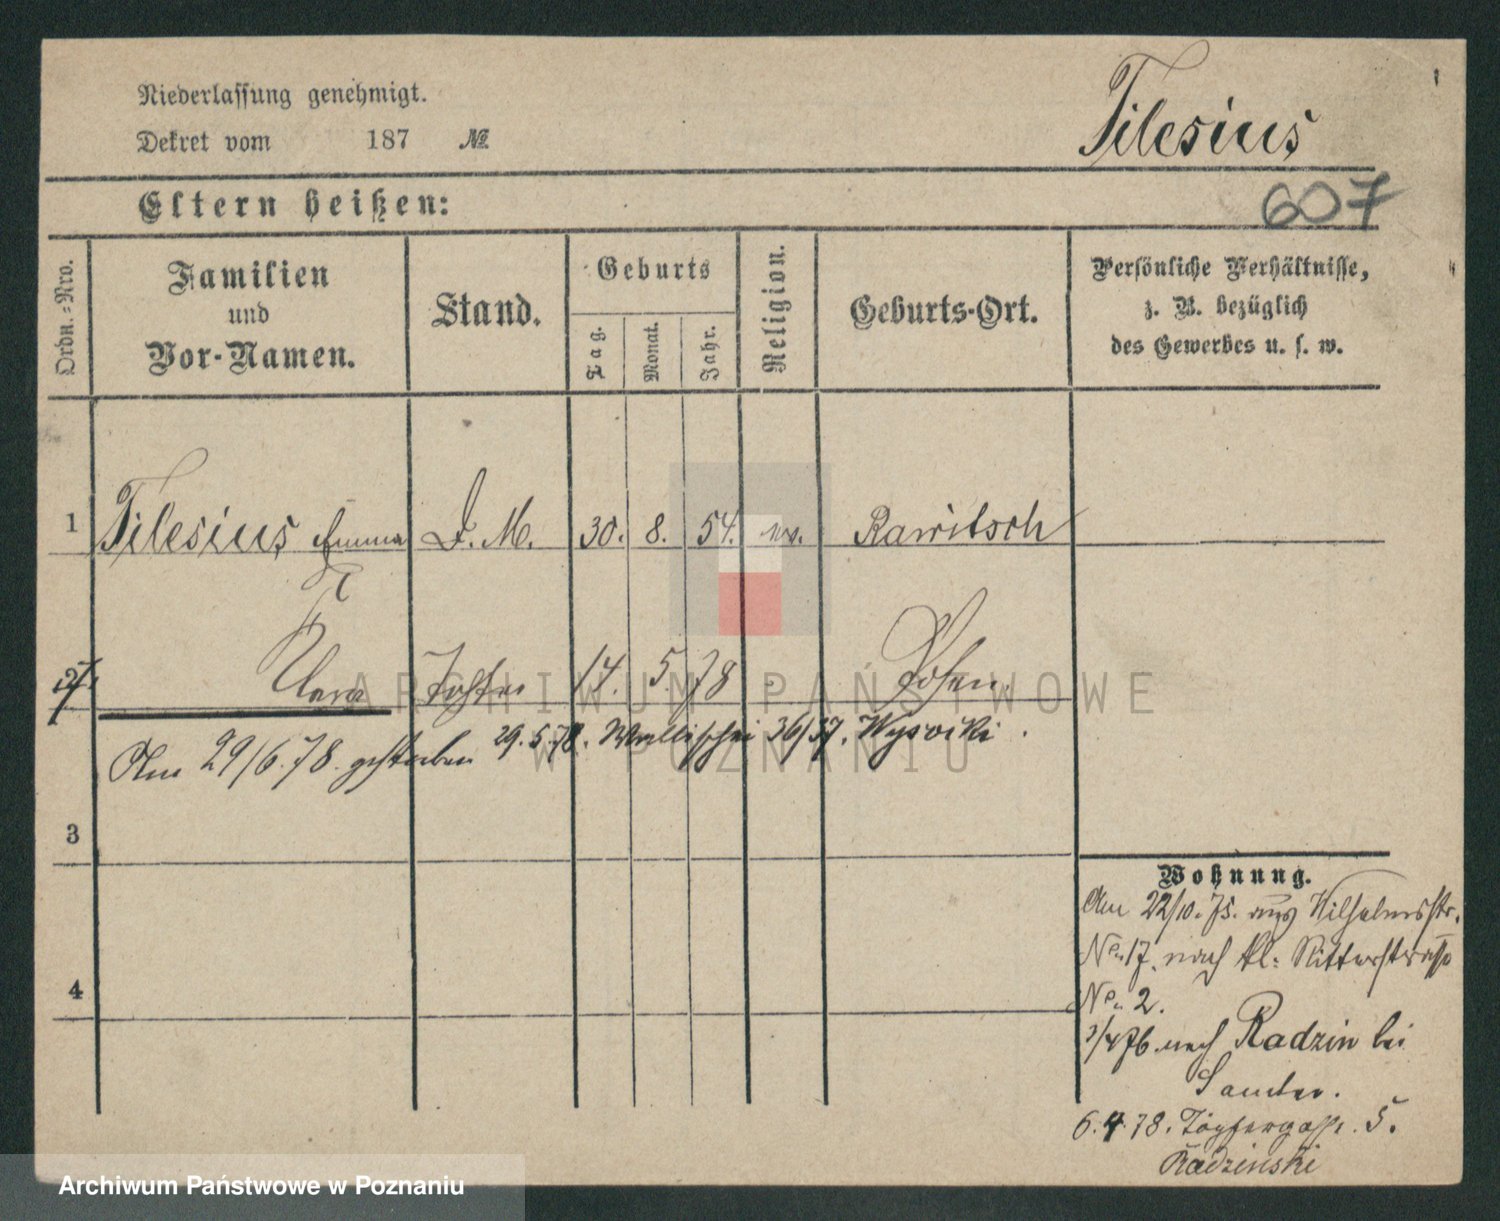 Niederlassung genehmigt.
Dekret vom 187 №
Tilesius
Eltern heißen:
607
Ordn.=Nro.
Familien
und
Vor-Namen.
Stand.
Geburts
Tag.
Monat.
Jahr.
Religion.
Geburts-Ort.
Persönliche Verhältnisse,
z. B. bezüglich
des Gewerbes u. s. w.
1 Tilesius Emma D. M. 30. 8. 54. Rawitsch
2 Clara Tochter 14. 5. 78 Posen
29. 5. 78. Wallischei 36/37. Wysocki.
Am 29/6. 78. gestorben
3
4
Wohnung.
Am 22/10. 75. aus Wilhelmsstr.
No 17. nach kl: Ritterstrasse
No 2.
nach Radzin bei
Samter.
6. 4. 78. Töpfergasse. 5.
Radzinski
ARCHIWUM PAŃSTWOWE
W POZNANIU
Archiwum Państwowe w Poznaniu